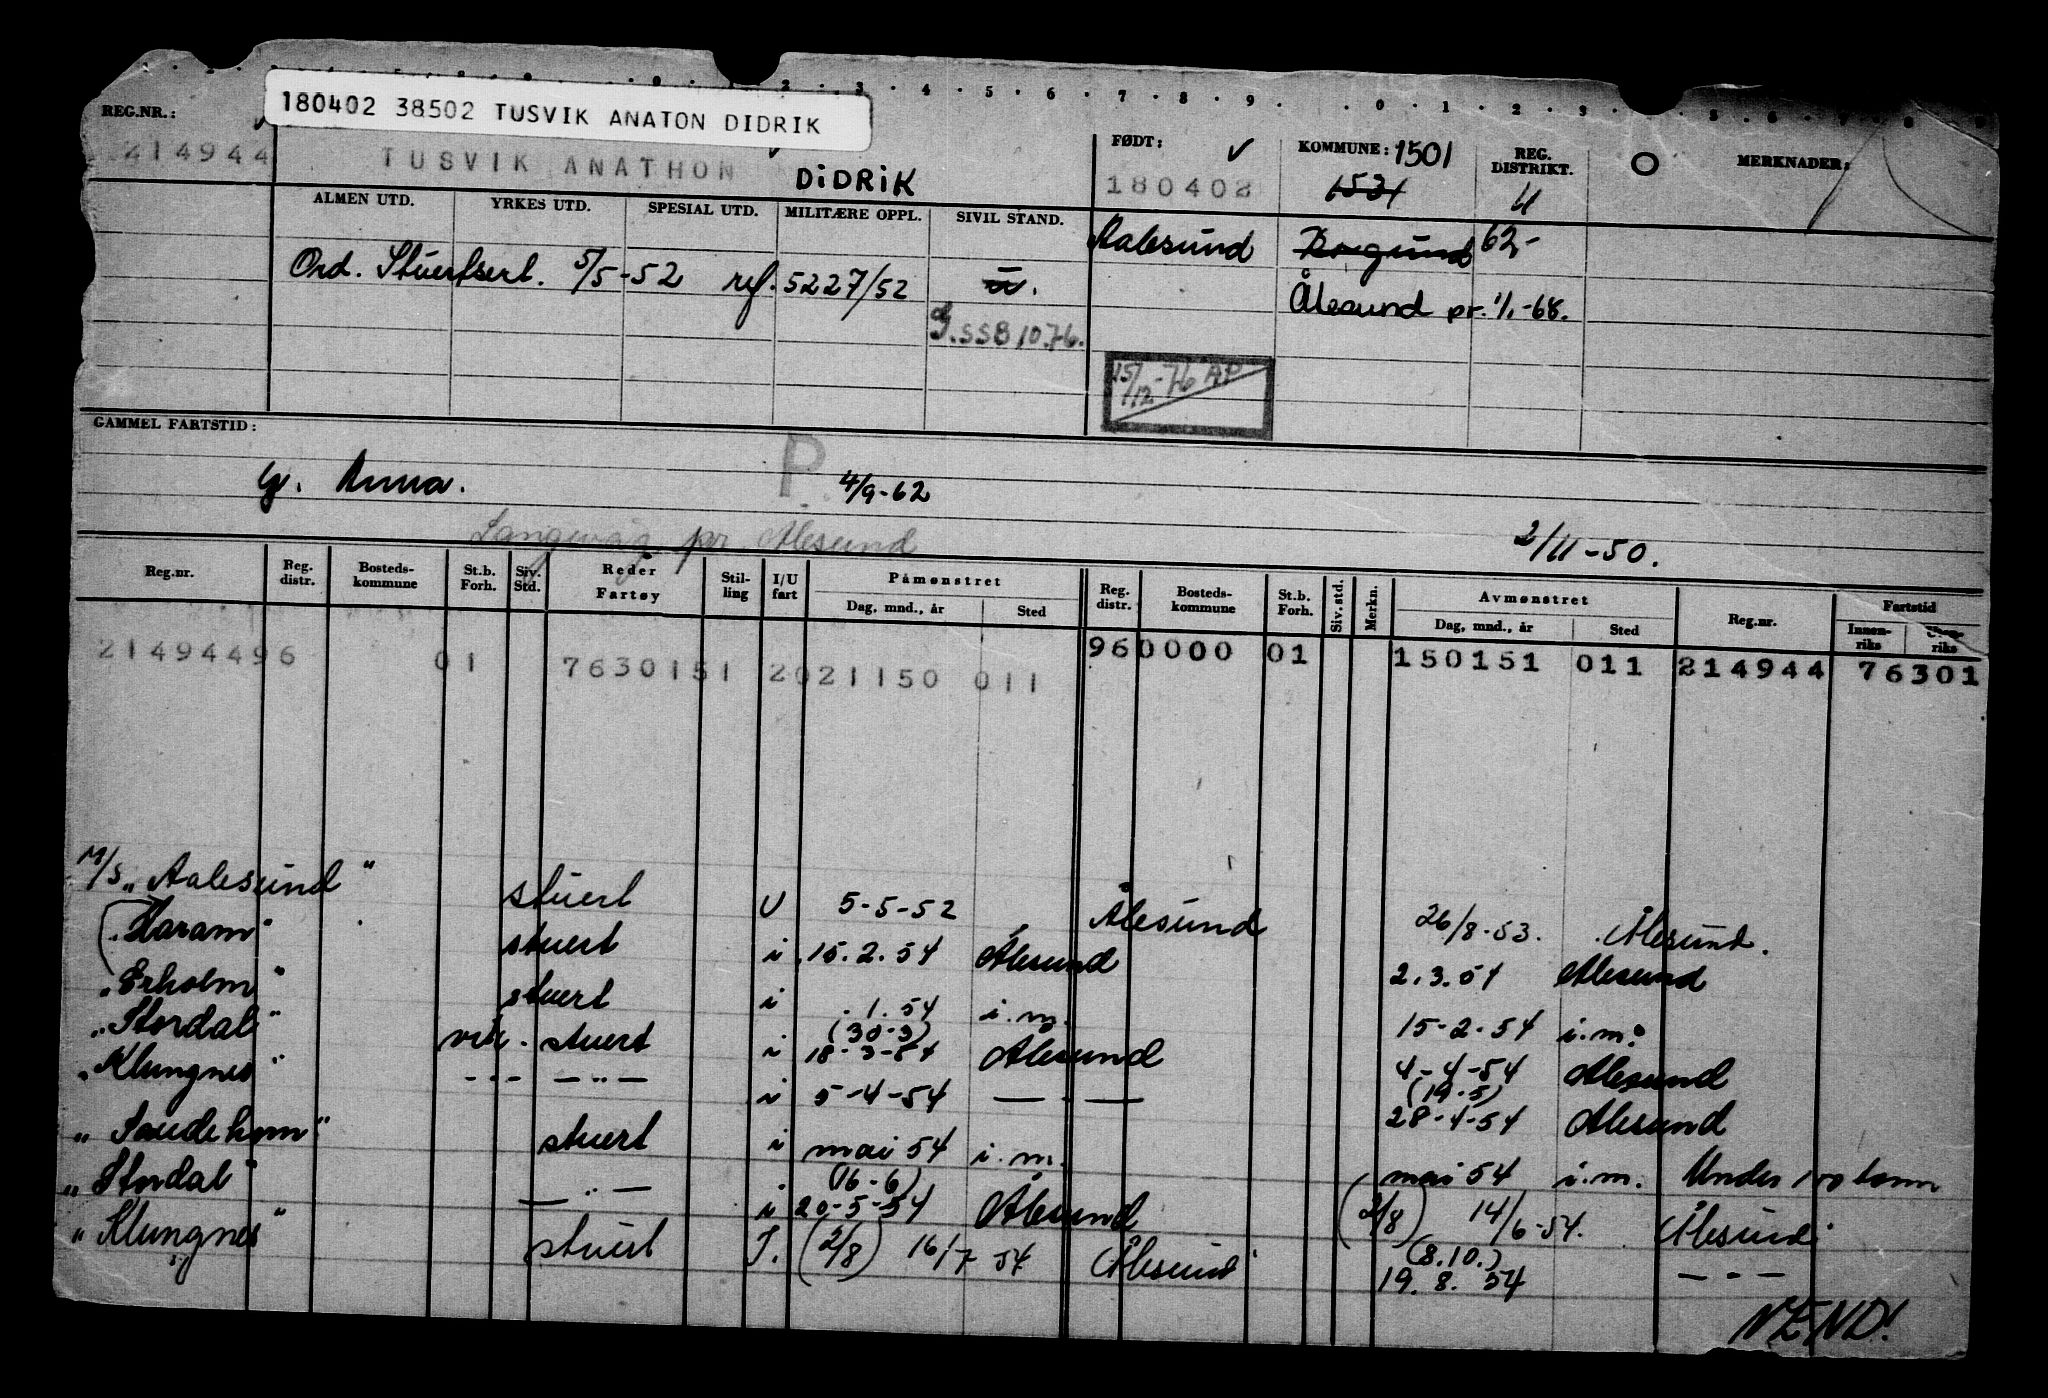 180402 38502 TUSVIK ANATON DIDRIK
REG.NR.: FØDT: KOMMUNE: 1501 REG. DISTRIKT. O MERKNADER:
214944 TUSVIK ANATHON DIDRIK 180402 1531 11
ALMEN UTD. YRKES UTD. SPESIAL UTD. MILITÆRE OPPL. SIVIL STAND.
Aalesund Borgund 62-
Ord. Stuertsert. 5/5-52 ref. 5227/52 u. Ålesund pr. 1/1-68.
SSB 10.76.
15/12-76 AP
GAMMEL FARTSTID:
P
g. Anna. 4/9-62
Langevåg pr. Ålesund 2/11-50.
Reg.nr. Reg. distr. Bosteds-kommune St.b. Forh. Siv. Std. Reder Fartøy Stil-ling I/U fart Påmønstret Dag, mnd., år Sted Reg. distr. Bosteds-kommune St.b. Forh. Siv. std. Merkn. Avmønstret Dag, mnd., år Sted Reg.nr. Fartstid Innen-riks Uten-riks
21494496 01 7630151 2021150 011 960000 01 150151 011 214944 76301
M/S "Aalesund" stuert U 5-5-52 Ålesund 26/8-53. Ålesund.
"Haram" stuert i 15.2.54 Ålesund 2.3.54 Ålesund
"Erholm" stuert i .1.54 i.m. 15-2-54 i.m.
(30-3)
"Stordal" vik. stuert i 18-3-54 Ålesund 4-4-54 Ålesund
(19-5)
"Klungnes" --- — " — i 5-4-54 — " — 28-4-54 Ålesund
" stuert i mai 54 i.m. mai 54 i.m. Under 100 tonn
(16-6)
"Stordal" — " — i 20-5-54 Ålesund (2/8) 14/6-54. Ålesund
(8.10.)
"Klungnes" stuert I. (2/8) 16/7 54 Ålesund 19.8.54 — " —
VEND!